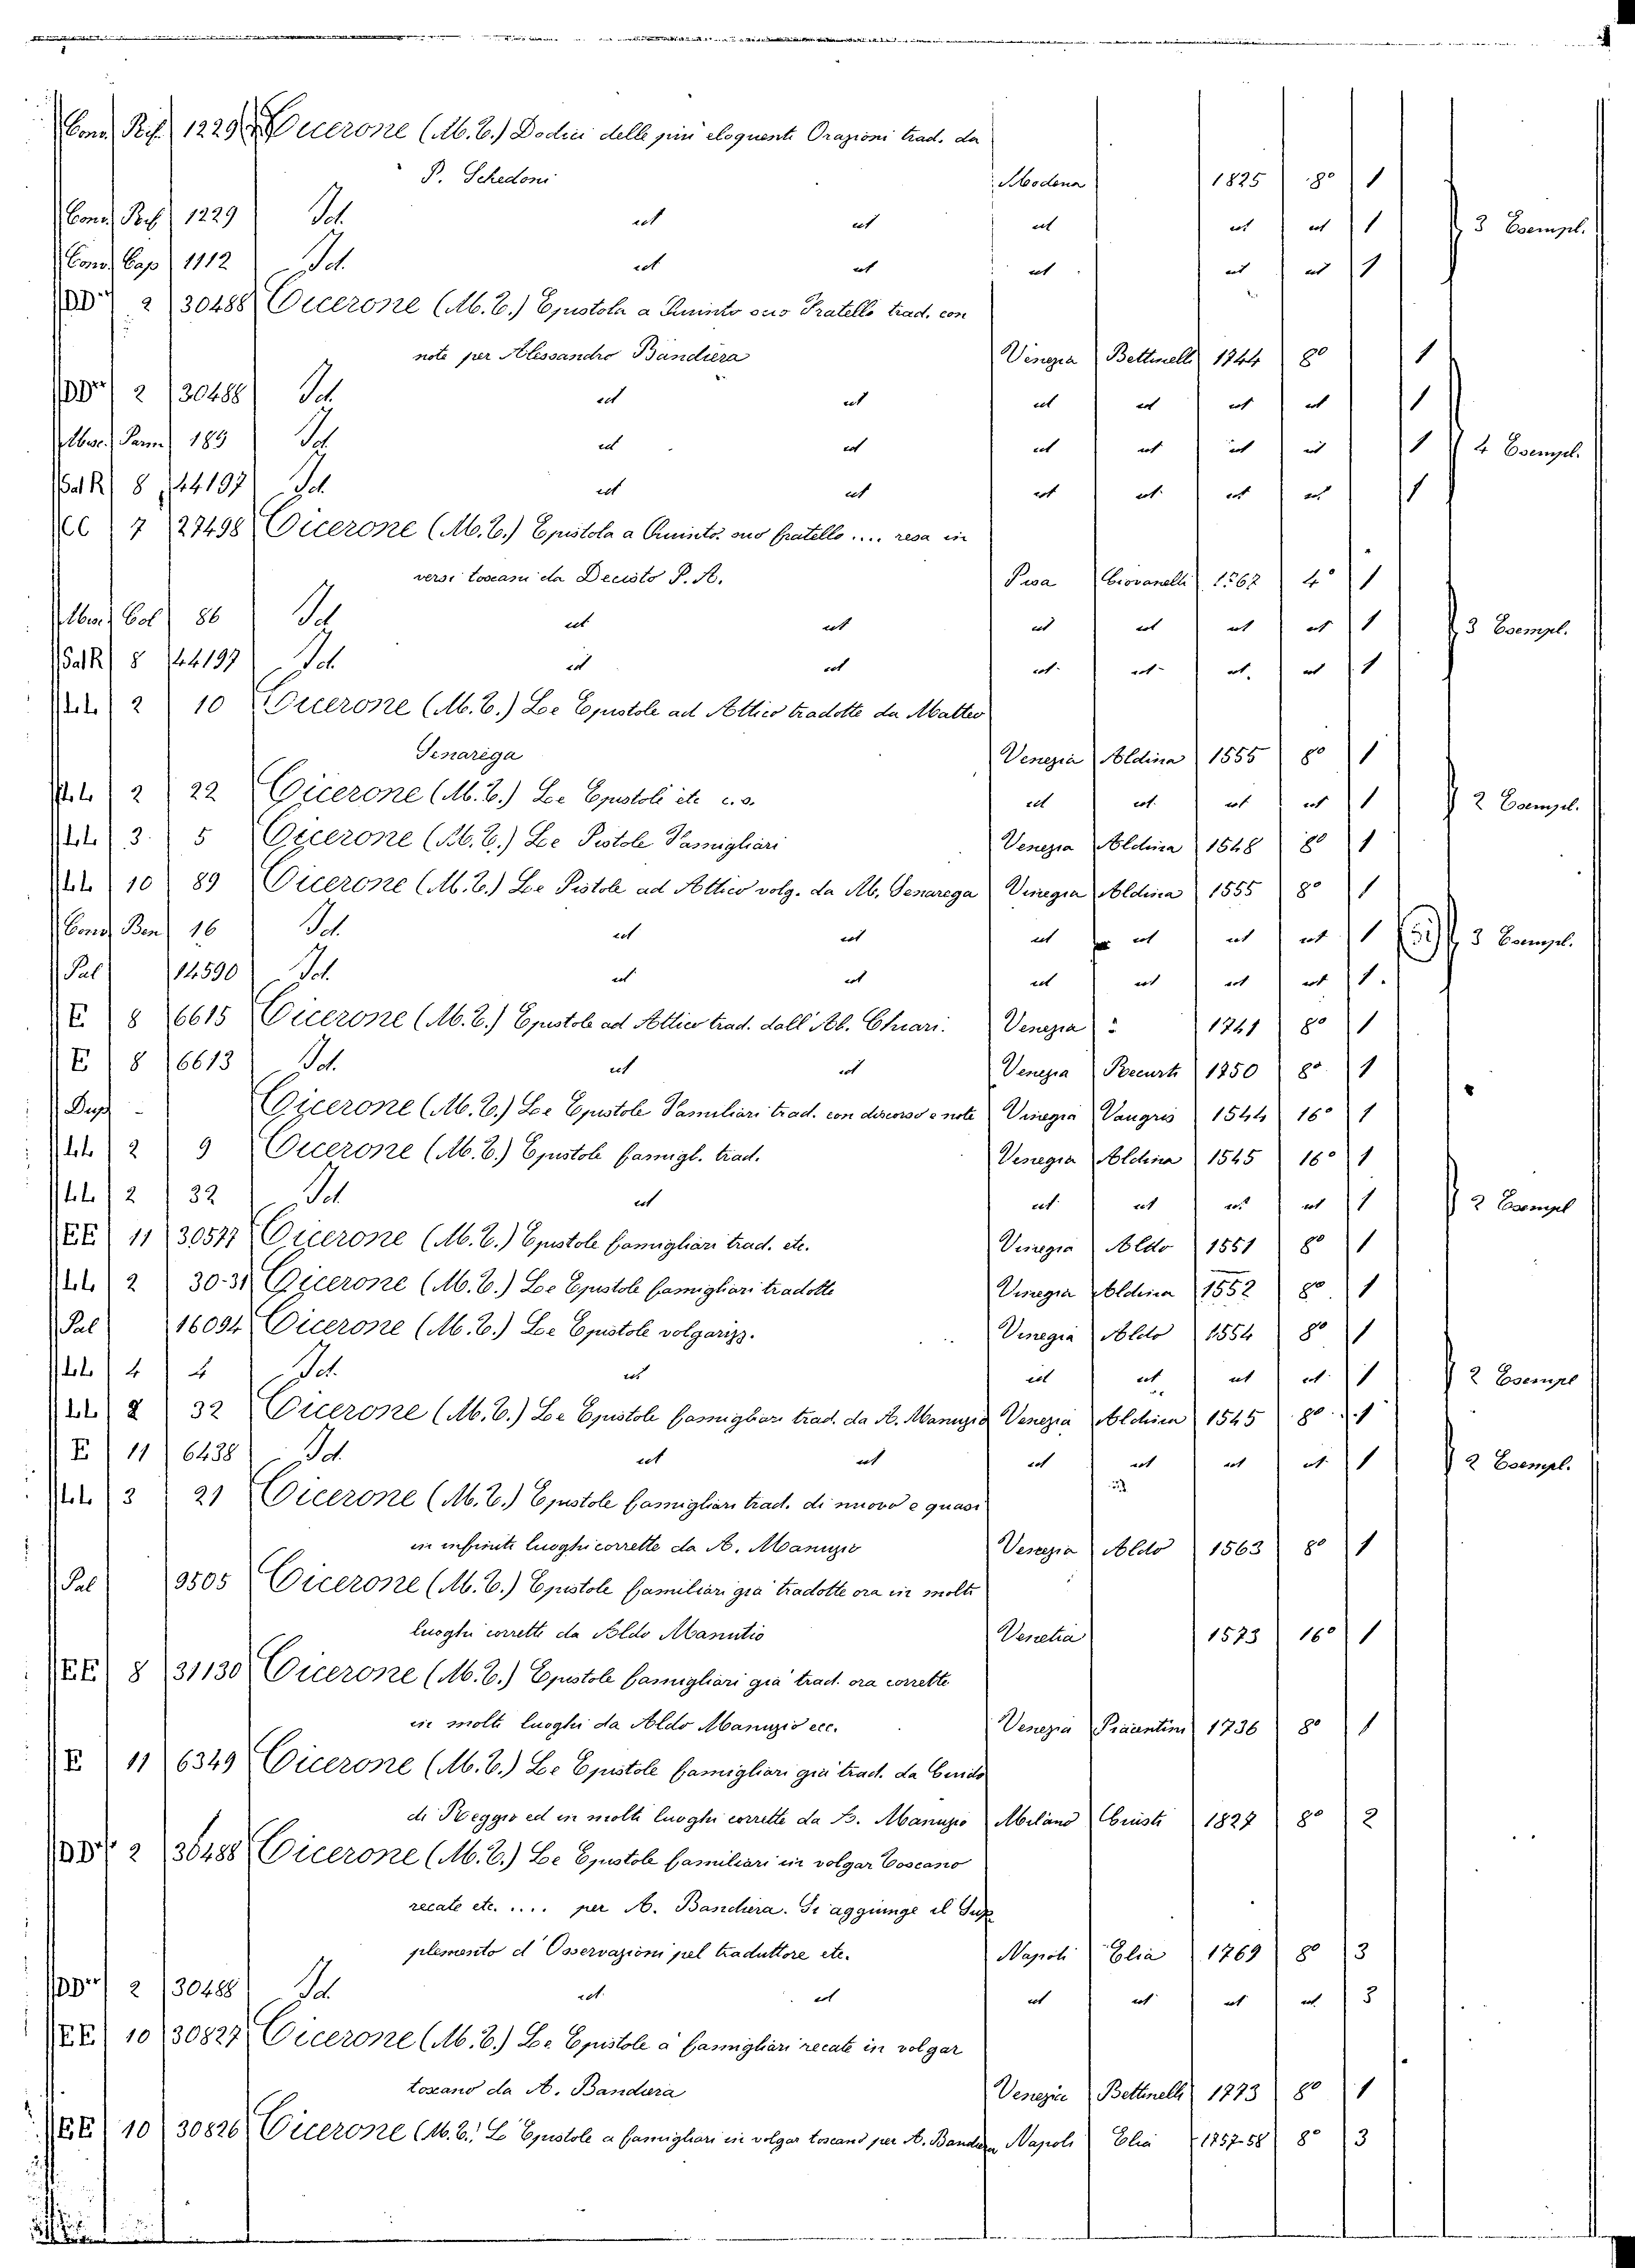 Conv. Rif. 1229 Cicerone (M. C.) Dodici delle più eloquenti Orazioni trad. da
P. Schedoni Modena 1825 8° 1
Conv. Rif. 1229 Id. ut ut ut ut ut 1 3 Esempl.
Conv. Cap 1112 Id. ut ut ut ut ut 1
2 30488 Cicerone (M. C.) Epistola a Quinto suo Fratello trad. con
note per Alessandro Bandiera Venezia Bettinelli 1744 8° 1
2 30488 Id. ut ut ut ut ut ut 1
189 Id. ut ut ut ut ut ut 1 4 Esempl.
Sal R 8 14197 Id. ut ut ut ut ut ut 1
CC 7 27498 Cicerone (M. C.) Epistola a Quinto suo fratello .... resa in
versi toscani da Decisto P. A. Pisa Giovanelli 4° 1
Col 86 Id. ut ut ut ut ut ut 1 3 Esempl.
Sal R 8 14197 Id. ut ut ut ut ut ut 1
2 10 Cicerone (M. C.) Le Epistole ad Attico tradotte da Matteo
Senarega Venezia Aldina 1555 8° 1
2 22 Cicerone (M. C.) Le Epistole etc c. s. ut ut ut ut 1 2 Esempl.
3 5 Cicerone (M. C.) Le Pistole Famigliari Venezia Aldina 1548 8° 1
10 89 Cicerone (M. C.) Le Pistole ad Attico volg. da M. Senarega Vinegia Aldina 1555 8° 1
Conv. Ben 16 Id. ut ut ut ut ut ut 1 3 Esempl.
Pal 14590 Id. ut ut ut ut ut ut 1.
E 8 6615 Cicerone (M. C.) Epistole ad Attico trad. dall' Ab. Chiari. Venezia 1741 8° 1
E 8 6613 Id. ut ut Venezia Recurti 1750 8° 1
Dupl - Cicerone (M. C.) Le Epistole Familiari trad. con discorso e note Vinegia Vaugris 1544 16° 1
2 9 Cicerone (M. C.) Epistole famigl. trad. Venegia Aldina 1545 16° 1
2 32 Id. ut ut ut ut ut 1 2 Esempl
EE 11 30577 Cicerone (M. C.) Epistole famigliari trad. etc. Vinegia Aldo 1551 8° 1
2 30-31 Cicerone (M. C.) Le Epistole famigliari tradotte Vinegia Aldina 1552 8° 1
Pal 16094 Cicerone (M. C.) Le Epistole volgarizz. Vinegia Aldo 1554 8° 1
4 4 Id. ut ut ut ut ut 1 2 Esempl
2 32 Cicerone (M. C.) Le Epistole famigliari trad. da A. Manuzio Venezia Aldina 1545 8° 1
E 11 6438 Id. ut ut ut ut ut ut 1 2 Esempl.
3 21 Cicerone (M. C.) Epistole famigliari trad. di nuovo e quasi
in infinite luoghi corrette da A. Manuzio Venezia Aldo 1563 8° 1
Pal 9505 Cicerone (M. C.) Epistole familiari gia tradotte ora in molti
luoghi corrette da Aldo Manutio Venetia 1573 16° 1
EE 8 31130 Cicerone (M. C.) Epistole famigliari già trad. ora corrette
in molti luoghi da Aldo Manuzio ecc. Venezia Piacentini 1736 8° 1
E 11 6349 Cicerone (M. C.) Le Epistole famigliari già trad. da Guido
di Reggio ed in molti luoghi corrette da A. Manuzio Milano Giusti 1827 8° 2
2 30488 Cicerone (M. C.) Le Epistole familiari in volgar Toscano
recate etc. .... per A. Bandiera. Si aggiunge il Sup
plemento d'Osservazioni pel traduttore etc. Napoli Elia 1769 8° 3
2 30488 Id. ut. ut ut ut ut ut 3
EE 10 30827 Cicerone (M. C.) Le Epistole a famigliari recate in volgar
toscano da A. Bandiera Venezia Bettinelli 1773 8° 1
EE 10 30826 Cicerone (M. C.) Le Epistole a famigliari in volgar toscano per A. Bandiera Napoli Elia 1757-58 8° 3